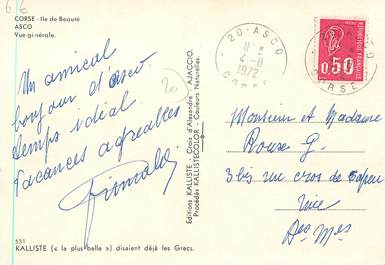 6 6
CORSE - Ile de Beauté
ASCO
Vue générale.
Un amical
bonjour d'Asco
temps idéal
Vacances agréables
Grimaldi
20
531
KALLISTE (« la plus belle ») disaient déjà les Grecs.
Editions KALLISTE - Cours d'Alexandre - AJACCIO.
Procédés KALLISTECOLOR - Couleurs Naturelles.
20 · ASCO
11 H
4 - 8
1972
CORSE
REPUBLIQUE FRANÇAISE
0,50
CORSE
Monsieur et Madame
Rouze G.
3 bis rue cros de Capeu
Nice
Alpes Mes